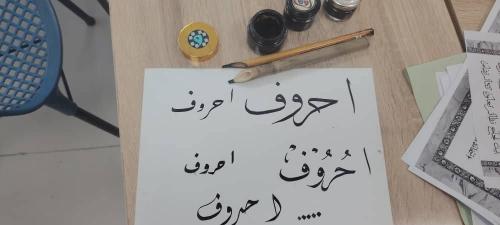 ا حروف ا حروف
ا حُرُوْفْ ا حروف
..... ا حروف